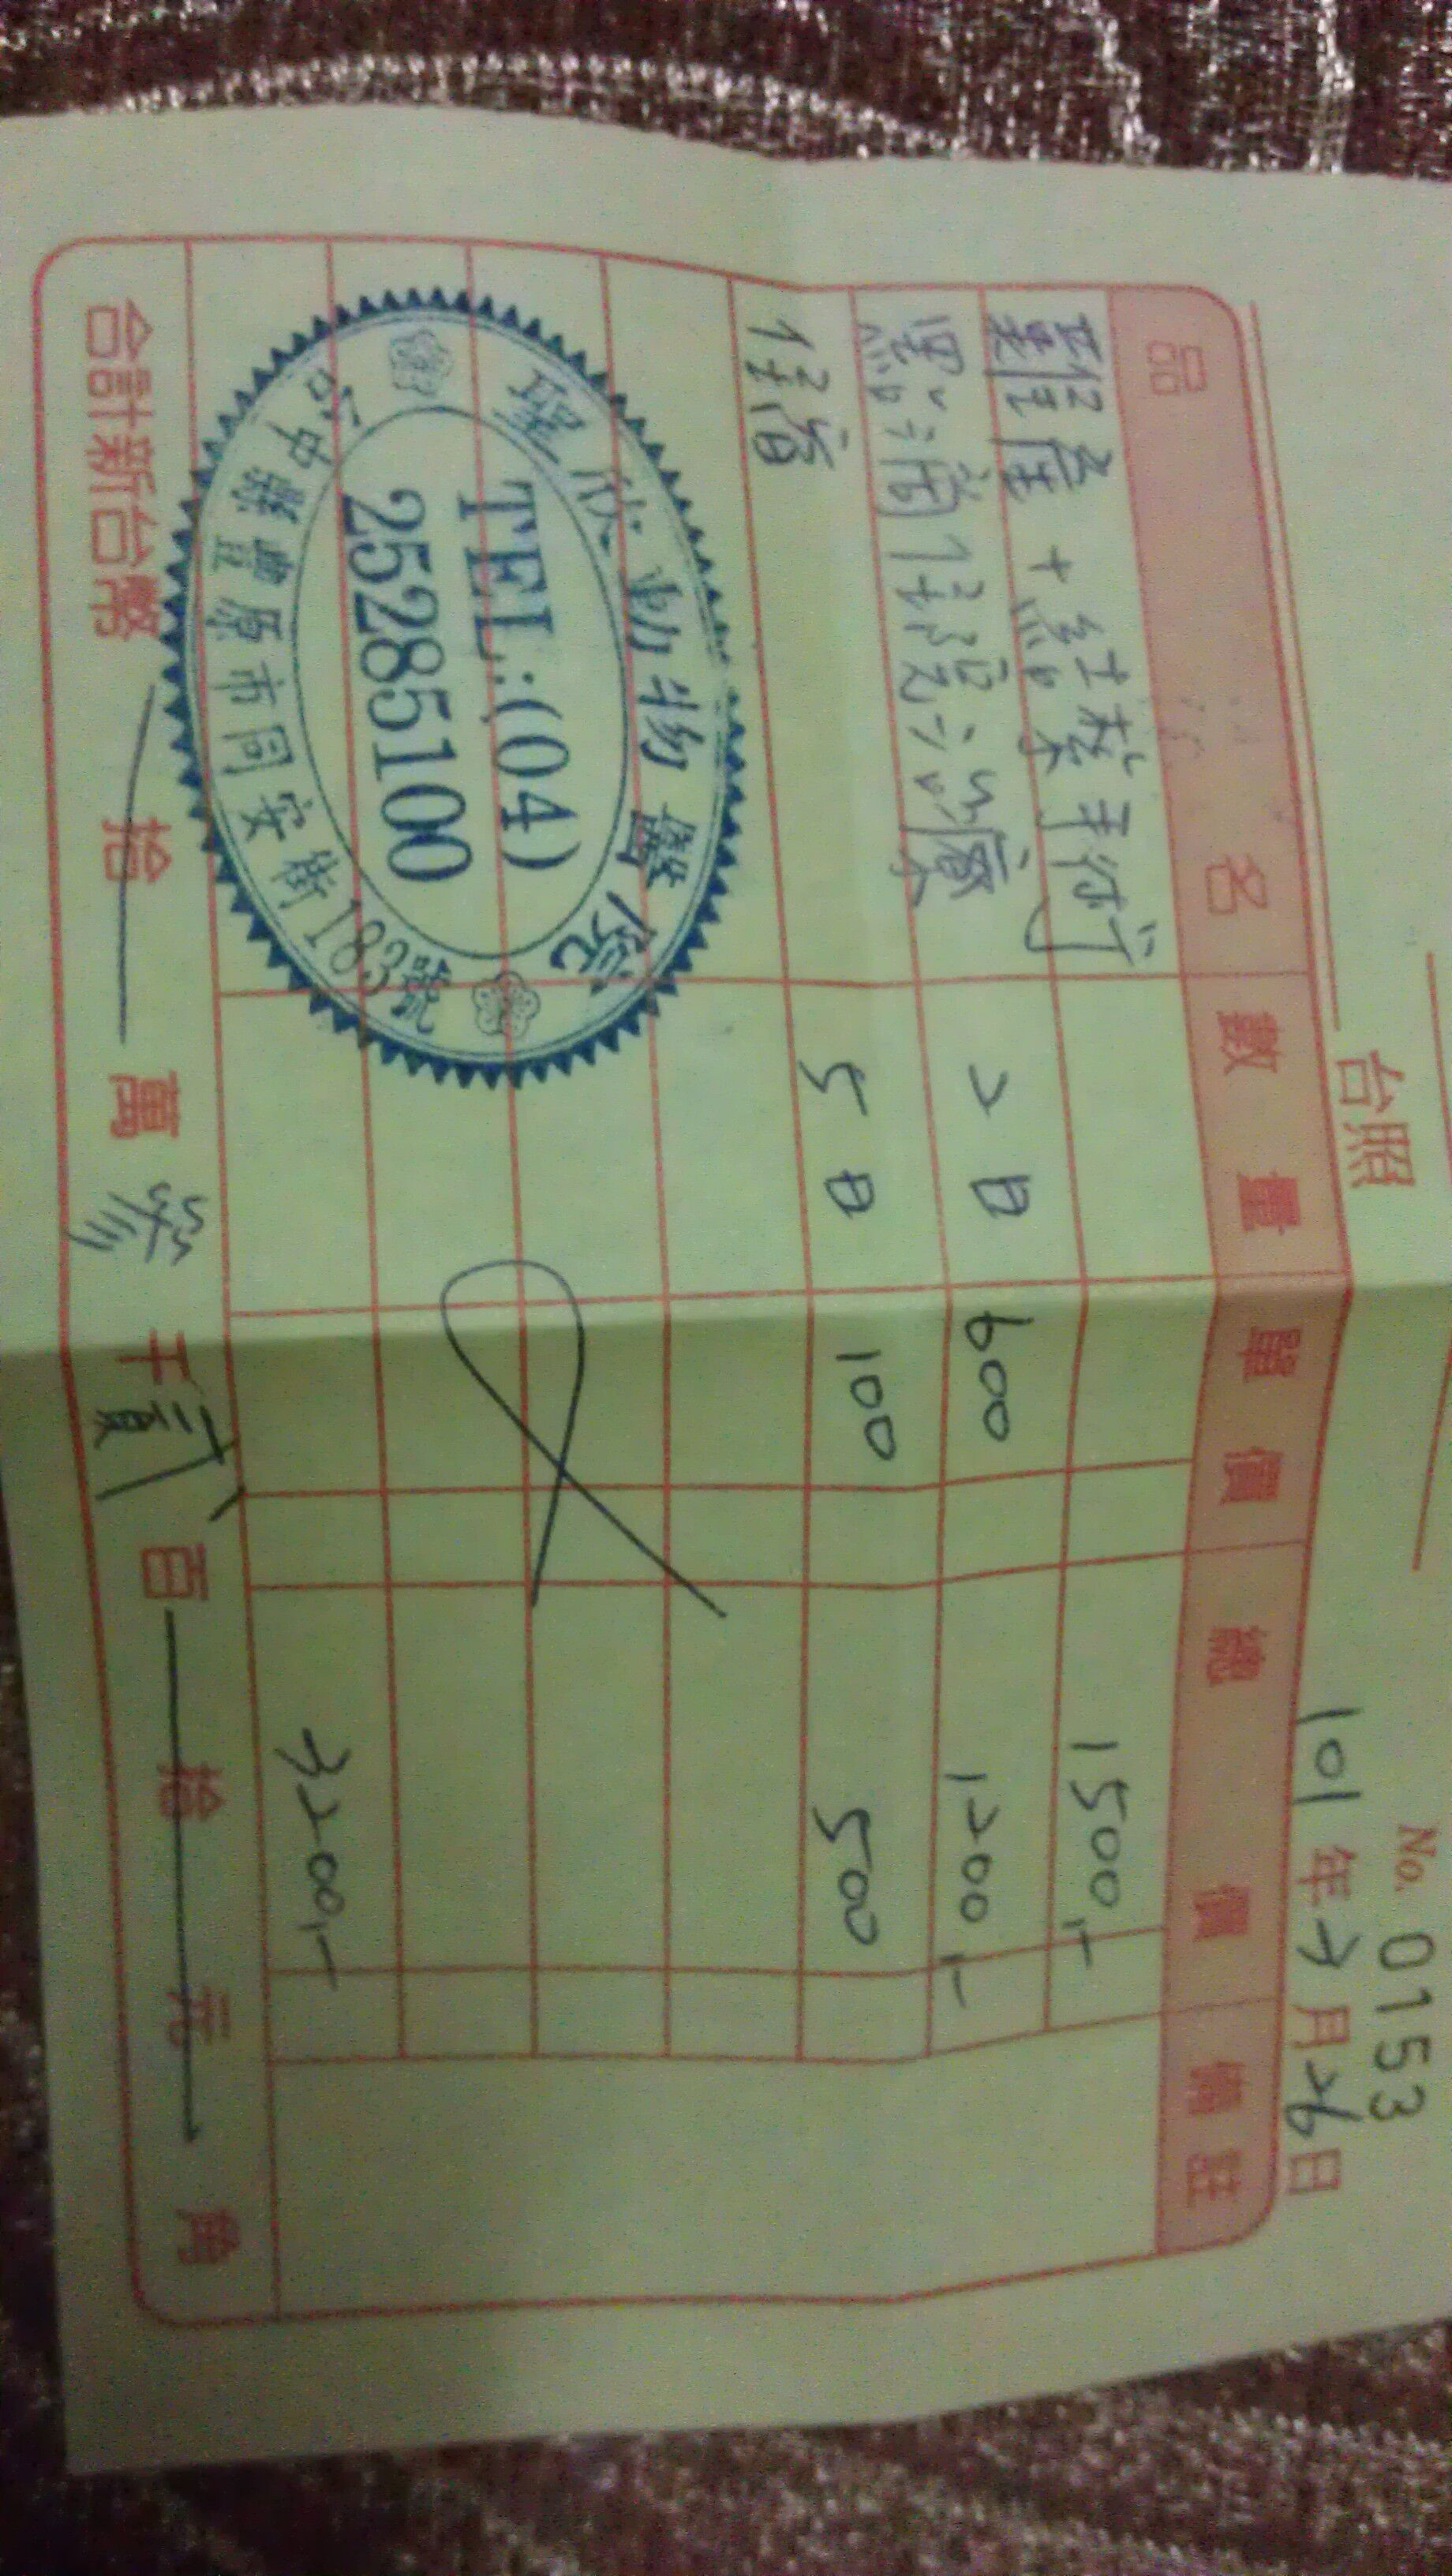 No. 0153
台照
101年 月26日
品名 數量 單價 總價 備註
難產+結紮手術 1500,-
黑子滴住院治療 2日 600 1200,-
住宿 5日 100 500
聖欣動物醫院
TEL:(04)
25285100
台中縣豐原市同安街183號
3200,-
合計新台幣 拾 萬 參 千 貳 百 拾 元 角